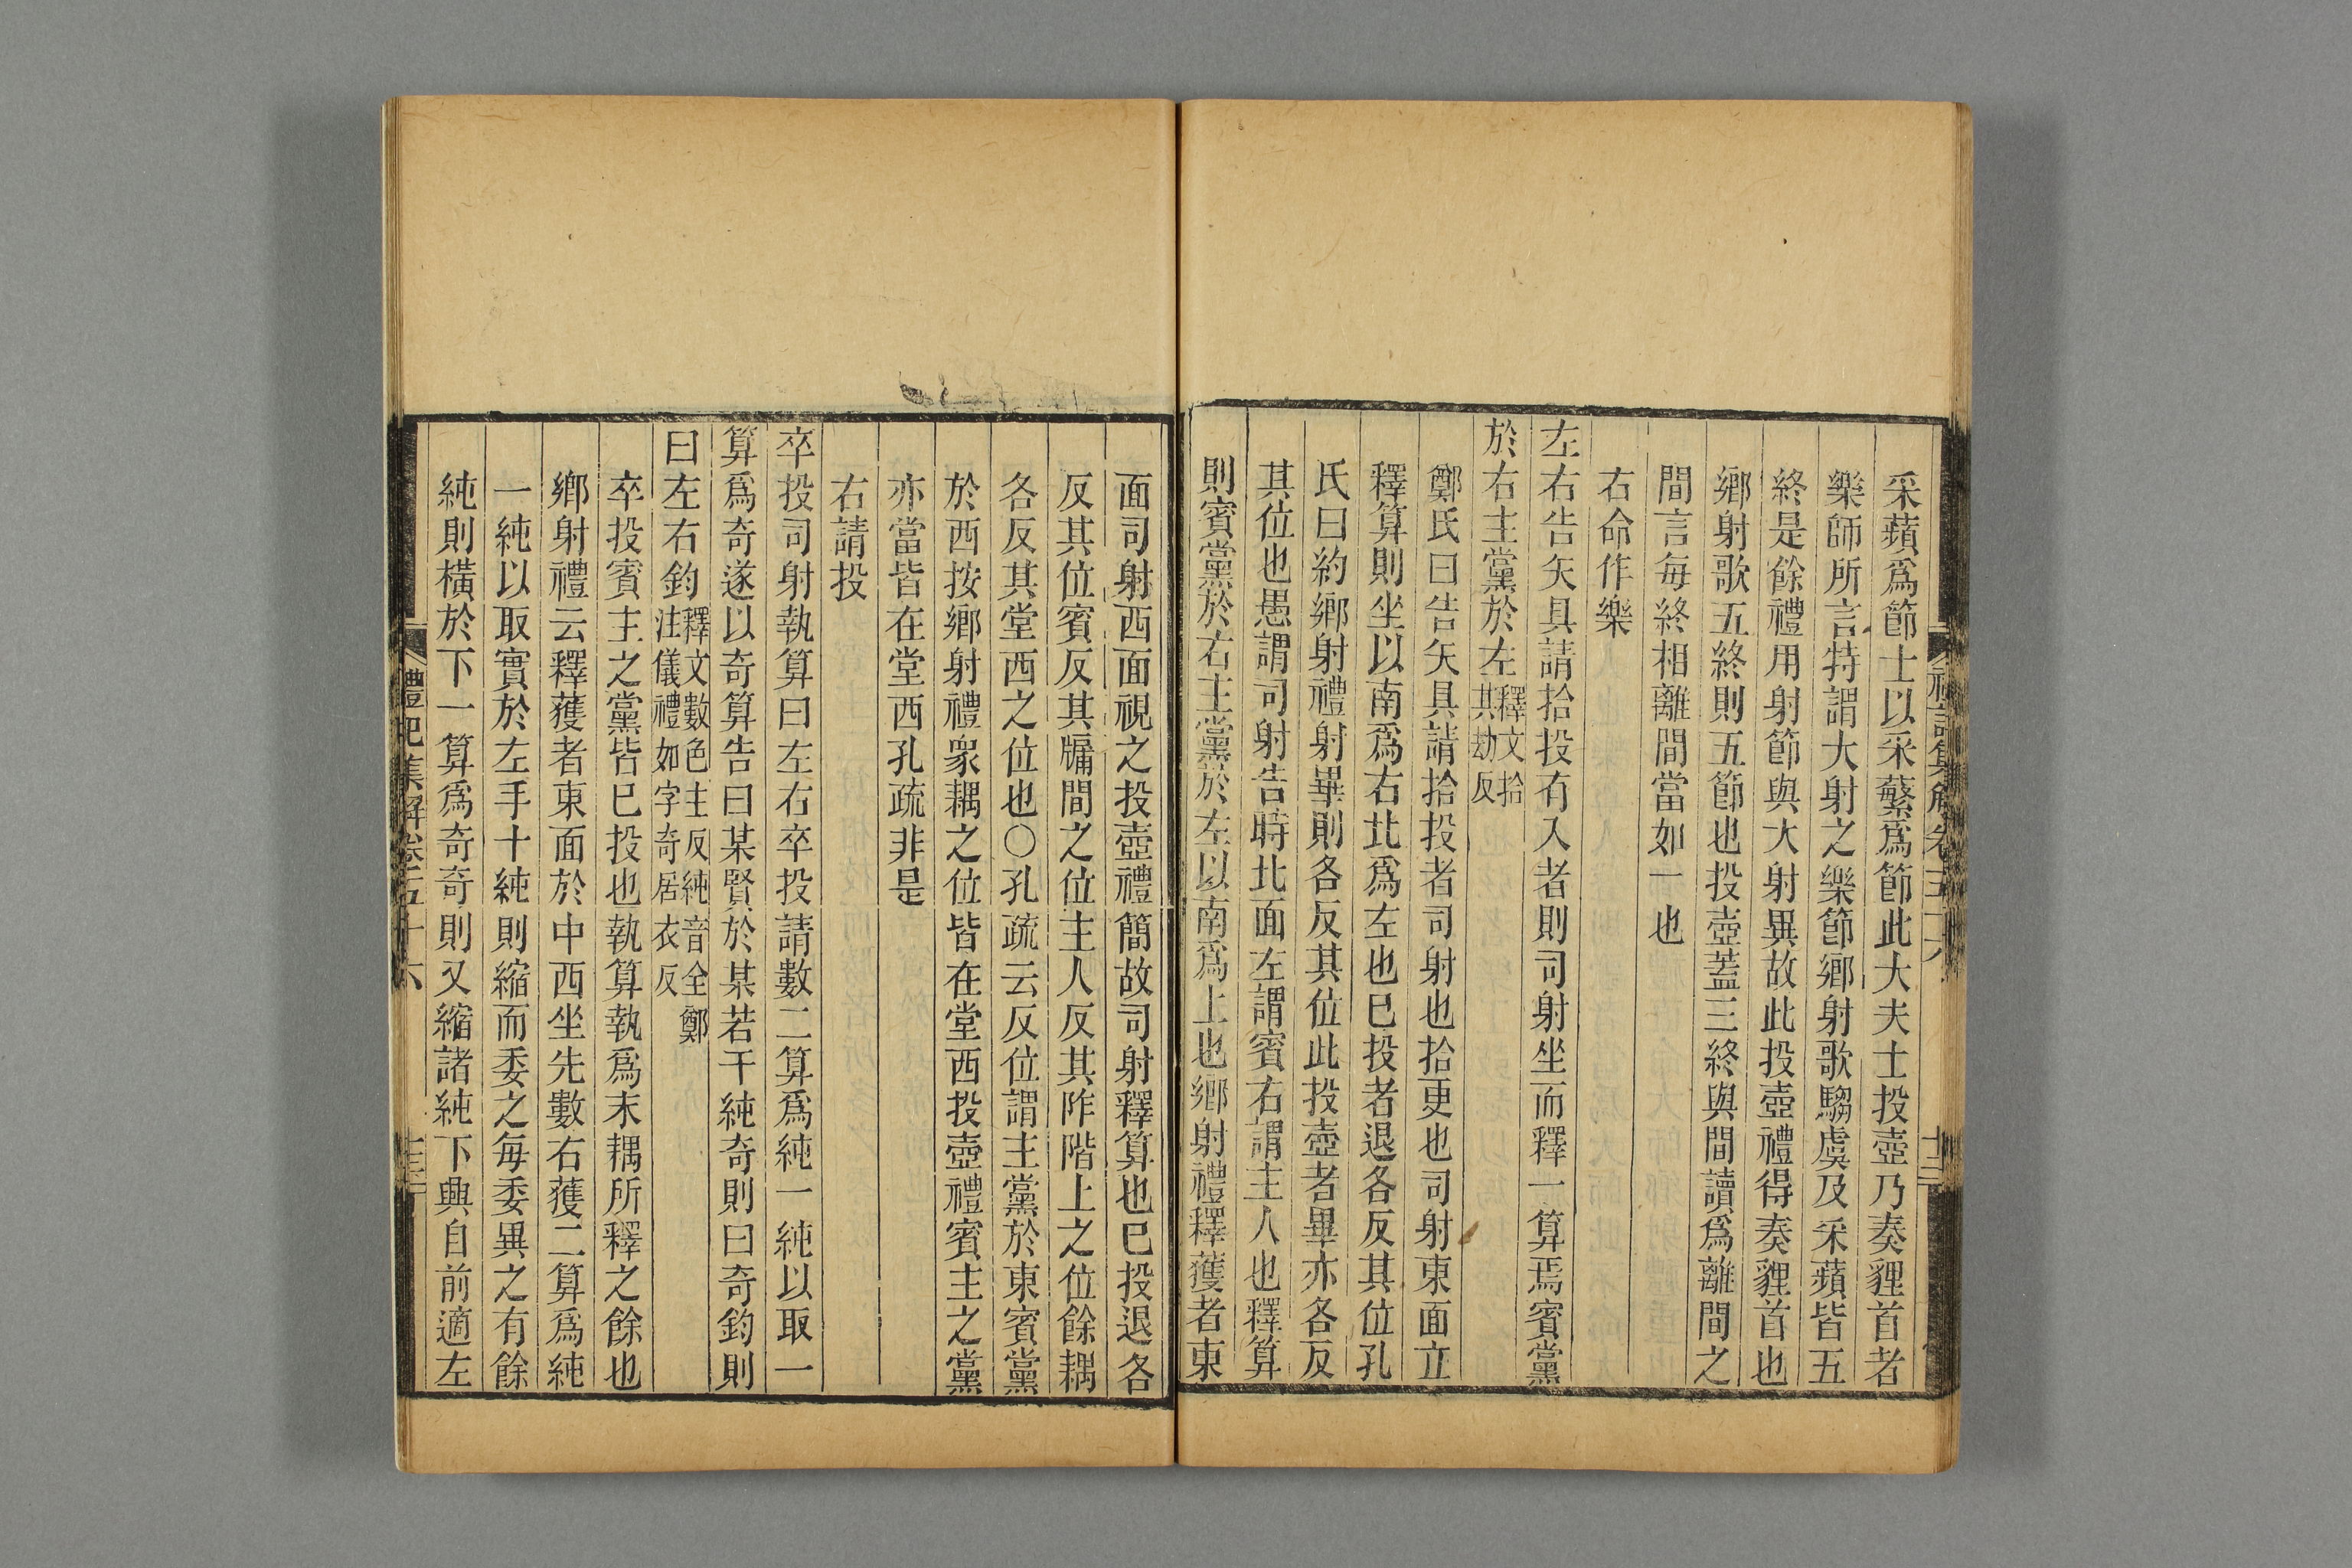 采蘋爲節士以采蘩爲節此大夫士投壺乃奏貍首者
樂師所言特謂大射之樂節鄉射歌騶虞及采蘋皆五
終是餘禮用射節與大射異故此投壺禮得奏貍首也
鄉射歌五終則五節也投壺蓋三終與間讀爲離間之
間言每終相離間當如一也
右命作樂
左右告矢具請拾投有入者則司射坐而釋一算焉賓黨
於右主黨於左釋文拾其劫反
鄭氏曰告矢具請拾投者司射也拾更也司射東面立
釋算則坐以南爲右北爲左也已投者退各反其位孔
氏曰約鄉射禮射畢則各反其位此投壺者畢亦各反
其位也愚謂司射告時北面左謂賓右謂主人也釋算
則賓黨於右主黨於左以南爲上也鄉射禮釋獲者東
面司射西面視之投壺禮簡故司射釋算也已投退各
反其位賓反其牖間之位主人反其阼階上之位餘耦
各反其堂西之位也○孔疏云反位謂主黨於東賓黨
於西按鄉射禮衆耦之位皆在堂西投壺禮賓主之黨
亦當皆在堂西孔疏非是
右請投
卒投司射執算曰左右卒投請數二算爲純一純以取一
算爲奇遂以奇算告曰某賢於某若干純奇則曰奇鈞則
曰左右鈞釋文數色主反純音全鄭注儀禮如字奇居衣反
卒投賓主之黨皆已投也執算執爲末耦所釋之餘也
鄉射禮云釋獲者東面於中西坐先數右獲二算爲純
一純以取實於左手十純則縮而委之每委異之有餘
純則橫於下一算爲奇奇則又縮諸純下興自前適左
禮記集解卷五十六
十三